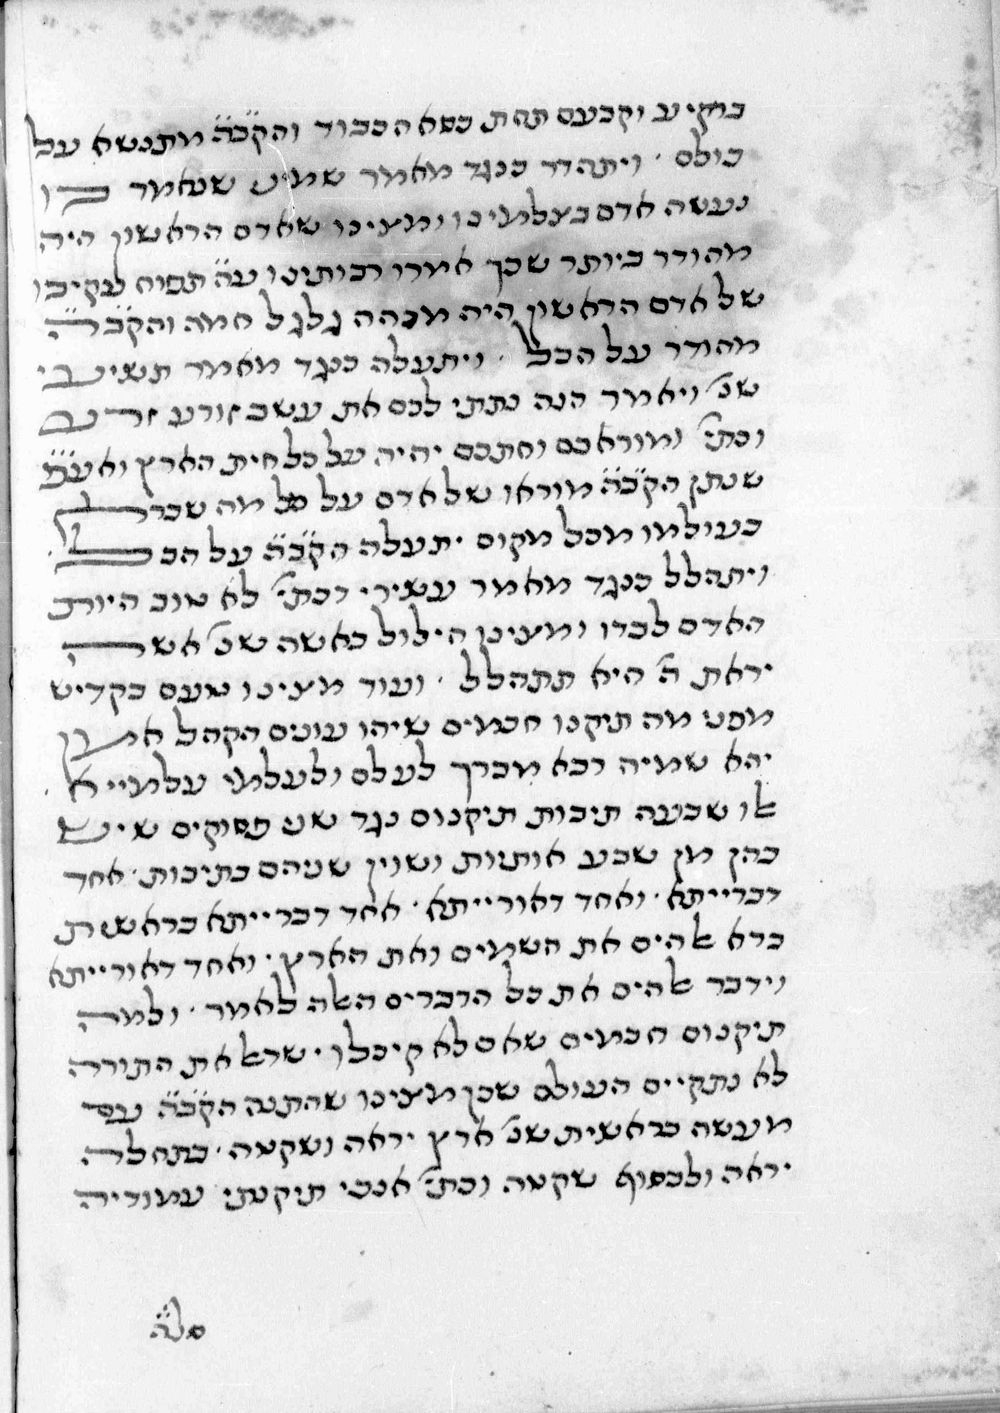 ברקיע וקבעם תחת כסא הכבוד והק֞ב֞ה מתנשא על
כולם ⋅ ויתהדר כנגד מאמר שמיני שנאמר בו
נעשה אדם בצלמינו ומצינו שאדם הראשון היה
מהודר ביותר שכך אמרו רבותינו ע״ה תפוח עקיבו
של אדם הראשון היה מכהה גלגל חמה והק״ב״ה
מהודר על הכל ⋅ ויתעלה כנגד מאמר תשיעי
שנ׳ ויאמר הנה נתתי לכם את עשב זורע זרע
וכתי׳ ומוראכם וחתכם יהיה על כל חית הארץ ואע״פ
שנתן הק״ב״ה מוראו של אדם על כל מה שברא
בעולמו מכל מקום יתעלה הק״ב״ה על הכל
ויתהלל כנגד מאמר עשירי דכתי׳ לא טוב היות
האדם לבדו ומצינו הילול באשה שנ׳ אשה
יראת ה׳ היא תתהלל ⋅ ועוד מצינו טעם בקדיש
מפני מה תיקנו חכמים שיהו עונים הקהל אמן
יהא שמיה רבא מברך לעלם ולעלמי עלמייא ⋅
אלו שבעה תיבות תיקנום נגד שני פסוקים שיש
בהן מן שבע אותיות ושוין שניהם בתיבות ⋅ אחד
דברייתא ⋅ ואחד דאורייתא ⋅ אחד דברייתא בראשית
ברא אלהים את השמים ואת הארץ ⋅ ואחד דאורייתא
וידבר אלהים את כל הדברים האלה לאמר ⋅ ולמה
תיקנום חכמים שאם לא קיבלו ישראל את התורה
לא נתקיים העולם שכן מצינו שהתנה הק״ב״ה עם
מעשה בראשית שנ׳ ארץ יראה ושקטה ⋅ בתחלה
יראה ולבסוף שקטה וכתי׳ אנכי תיקנתי עמודיה
סלה